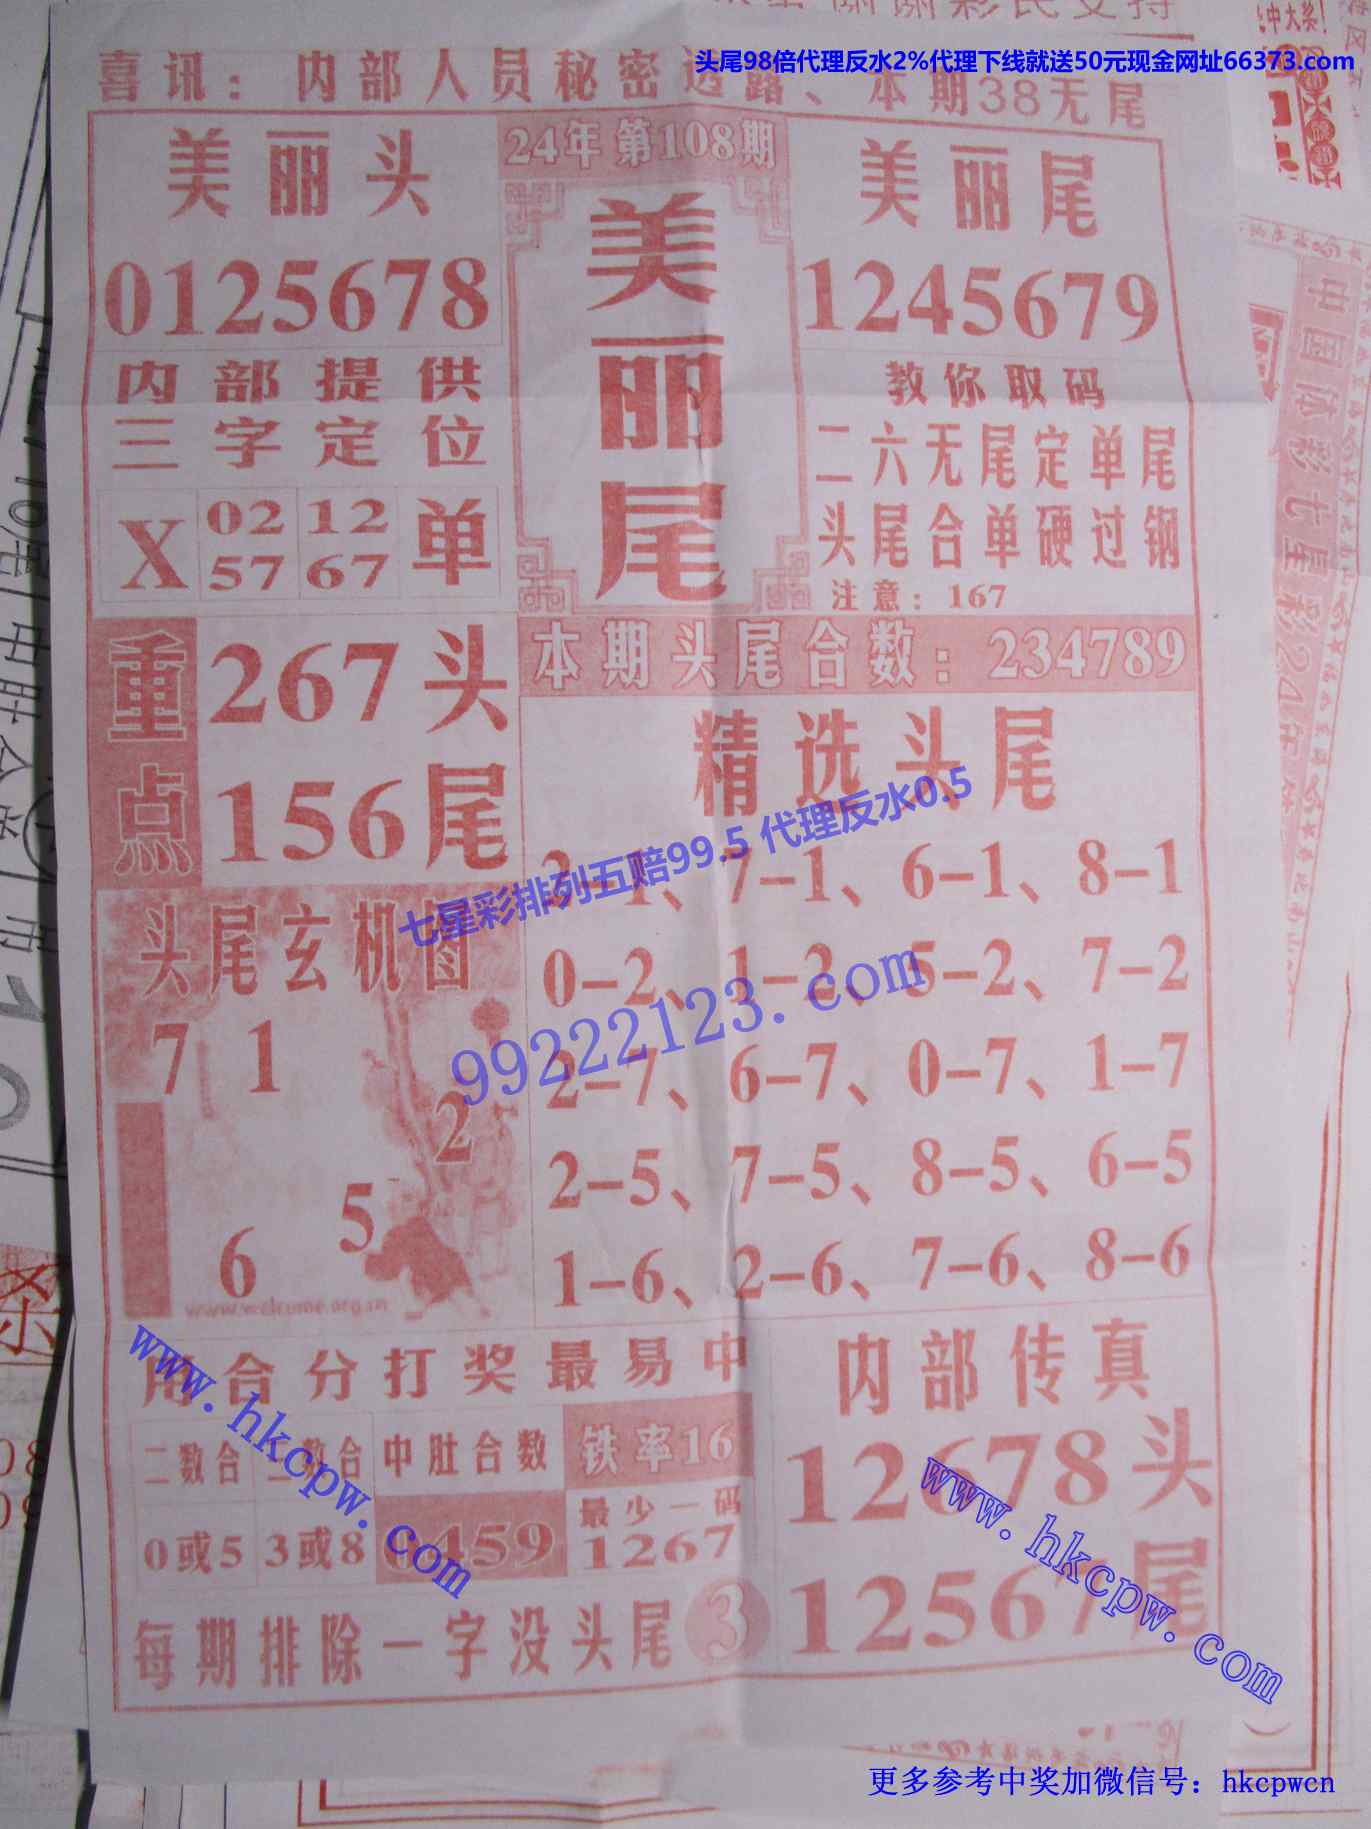 头尾98倍代理反水2%代理下线就送50元现金网址66373.com
喜讯：内部人员秘密透露、本期38无尾
24年第108期
美丽尾
美丽头
0125678
美丽尾
1245679
内部提供
三字定位
X 02 12 单
57 67
教你取码
二六无尾定单尾
头尾合单硬过钢
注意：167
重点
267头
156尾
本期头尾合数：234789
精选头尾
2-1、7-1、6-1、8-1
0-2、1-2、5-2、7-2
2-7、6-7、0-7、1-7
2-5、7-5、8-5、6-5
1-6、2-6、7-6、8-6
七星彩排列五赔99.5 代理反水0.5
99222123.com
头尾玄机图
7 1
2
5
6
www.welcome.org.cn
用合分打奖最易中
二数合 二数合 中肚合数 铁率16
0或5 3或8 0459 最少一码
1267
每期排除一字没头尾 3
内部传真
12678头
12567尾
www.hkcpw.com
www.hkcpw.com
中国体彩七星彩24年
更多参考中奖加微信号：hkcpwcn